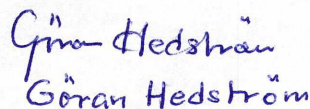 Göran Hedström
Göran Hedström